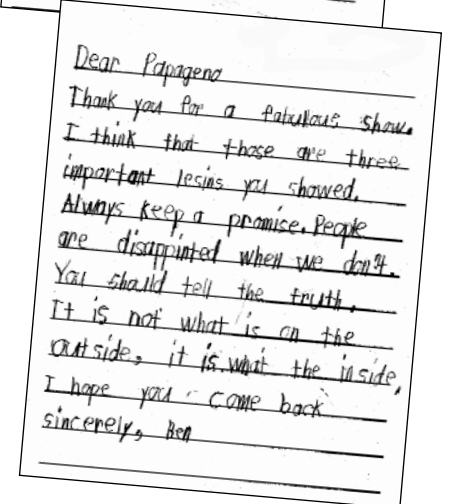 Dear Papageno
Thank you for a fabulous show.
I think that those are three
important lesins you showed.
Always keep a promise. People
are disappinted when we don't.
You should tell the truth.
It is not what is on the
outside, it is what the inside,
I hope you come back
sincerely, Ben